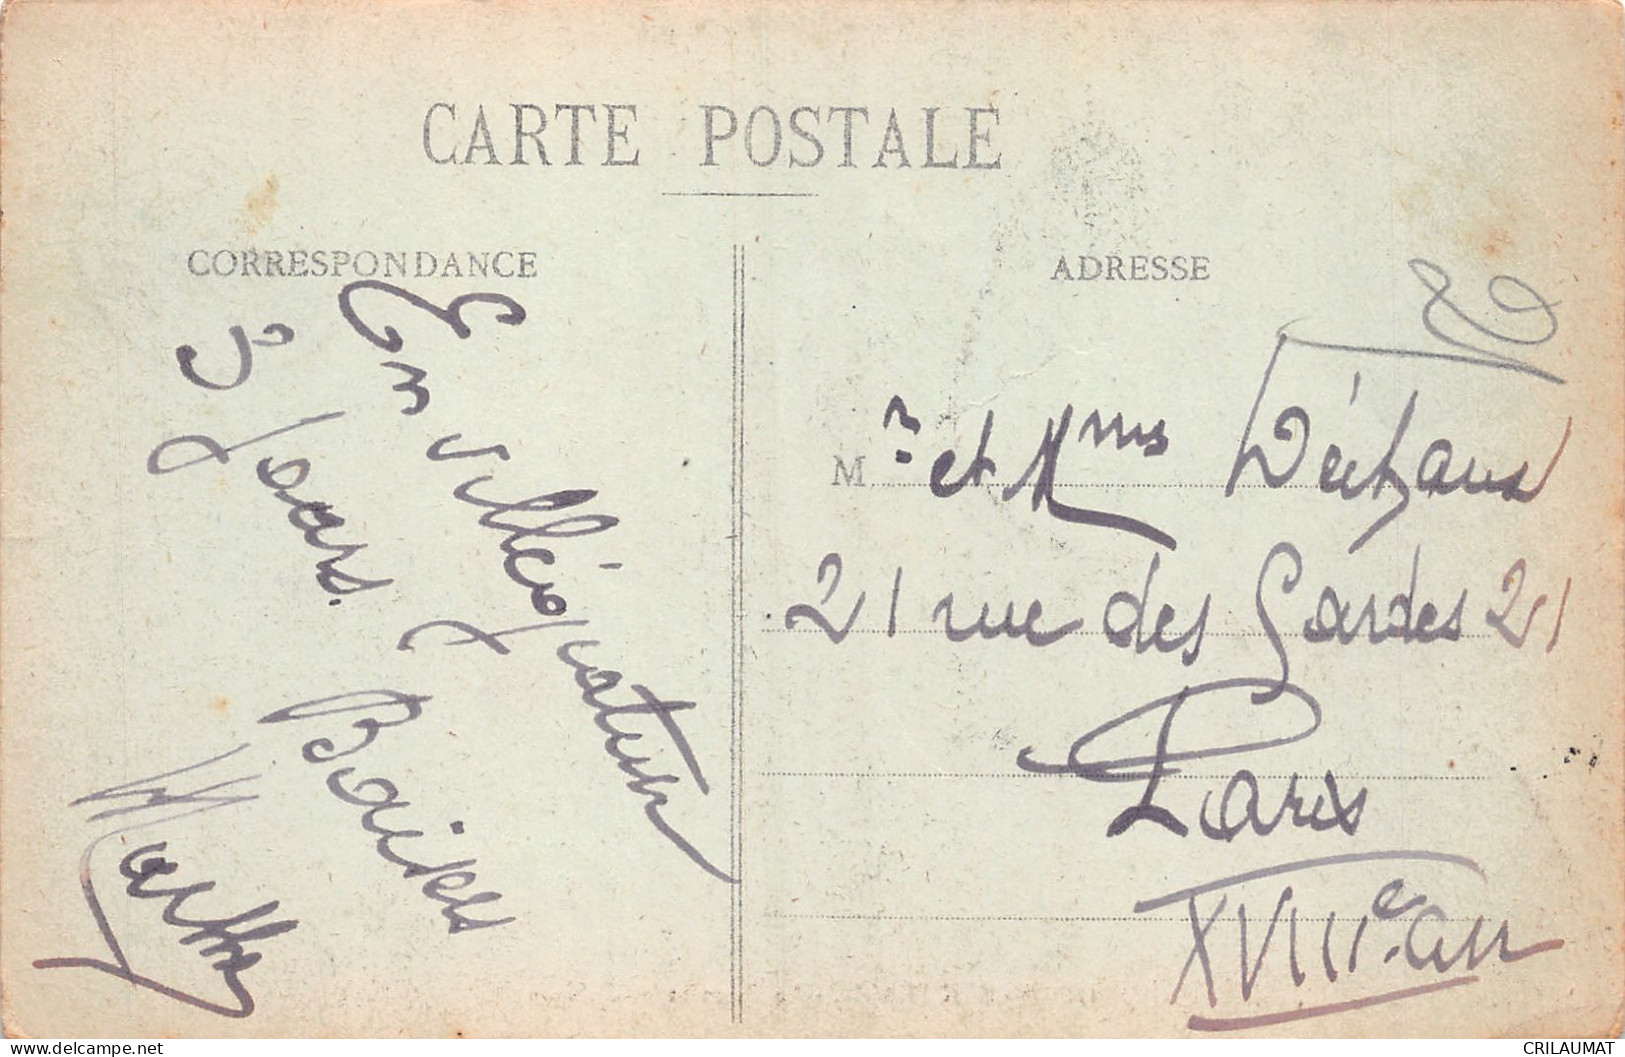 CARTE POSTALE
CORRESPONDANCE
ADRESSE
En villégiature
3 Jours.
Baisers
Marthe
M r et Mme
21 rue des Gardes 21
Paris
XVIIIe arr
www.delcampe.net
CRILAUMAT